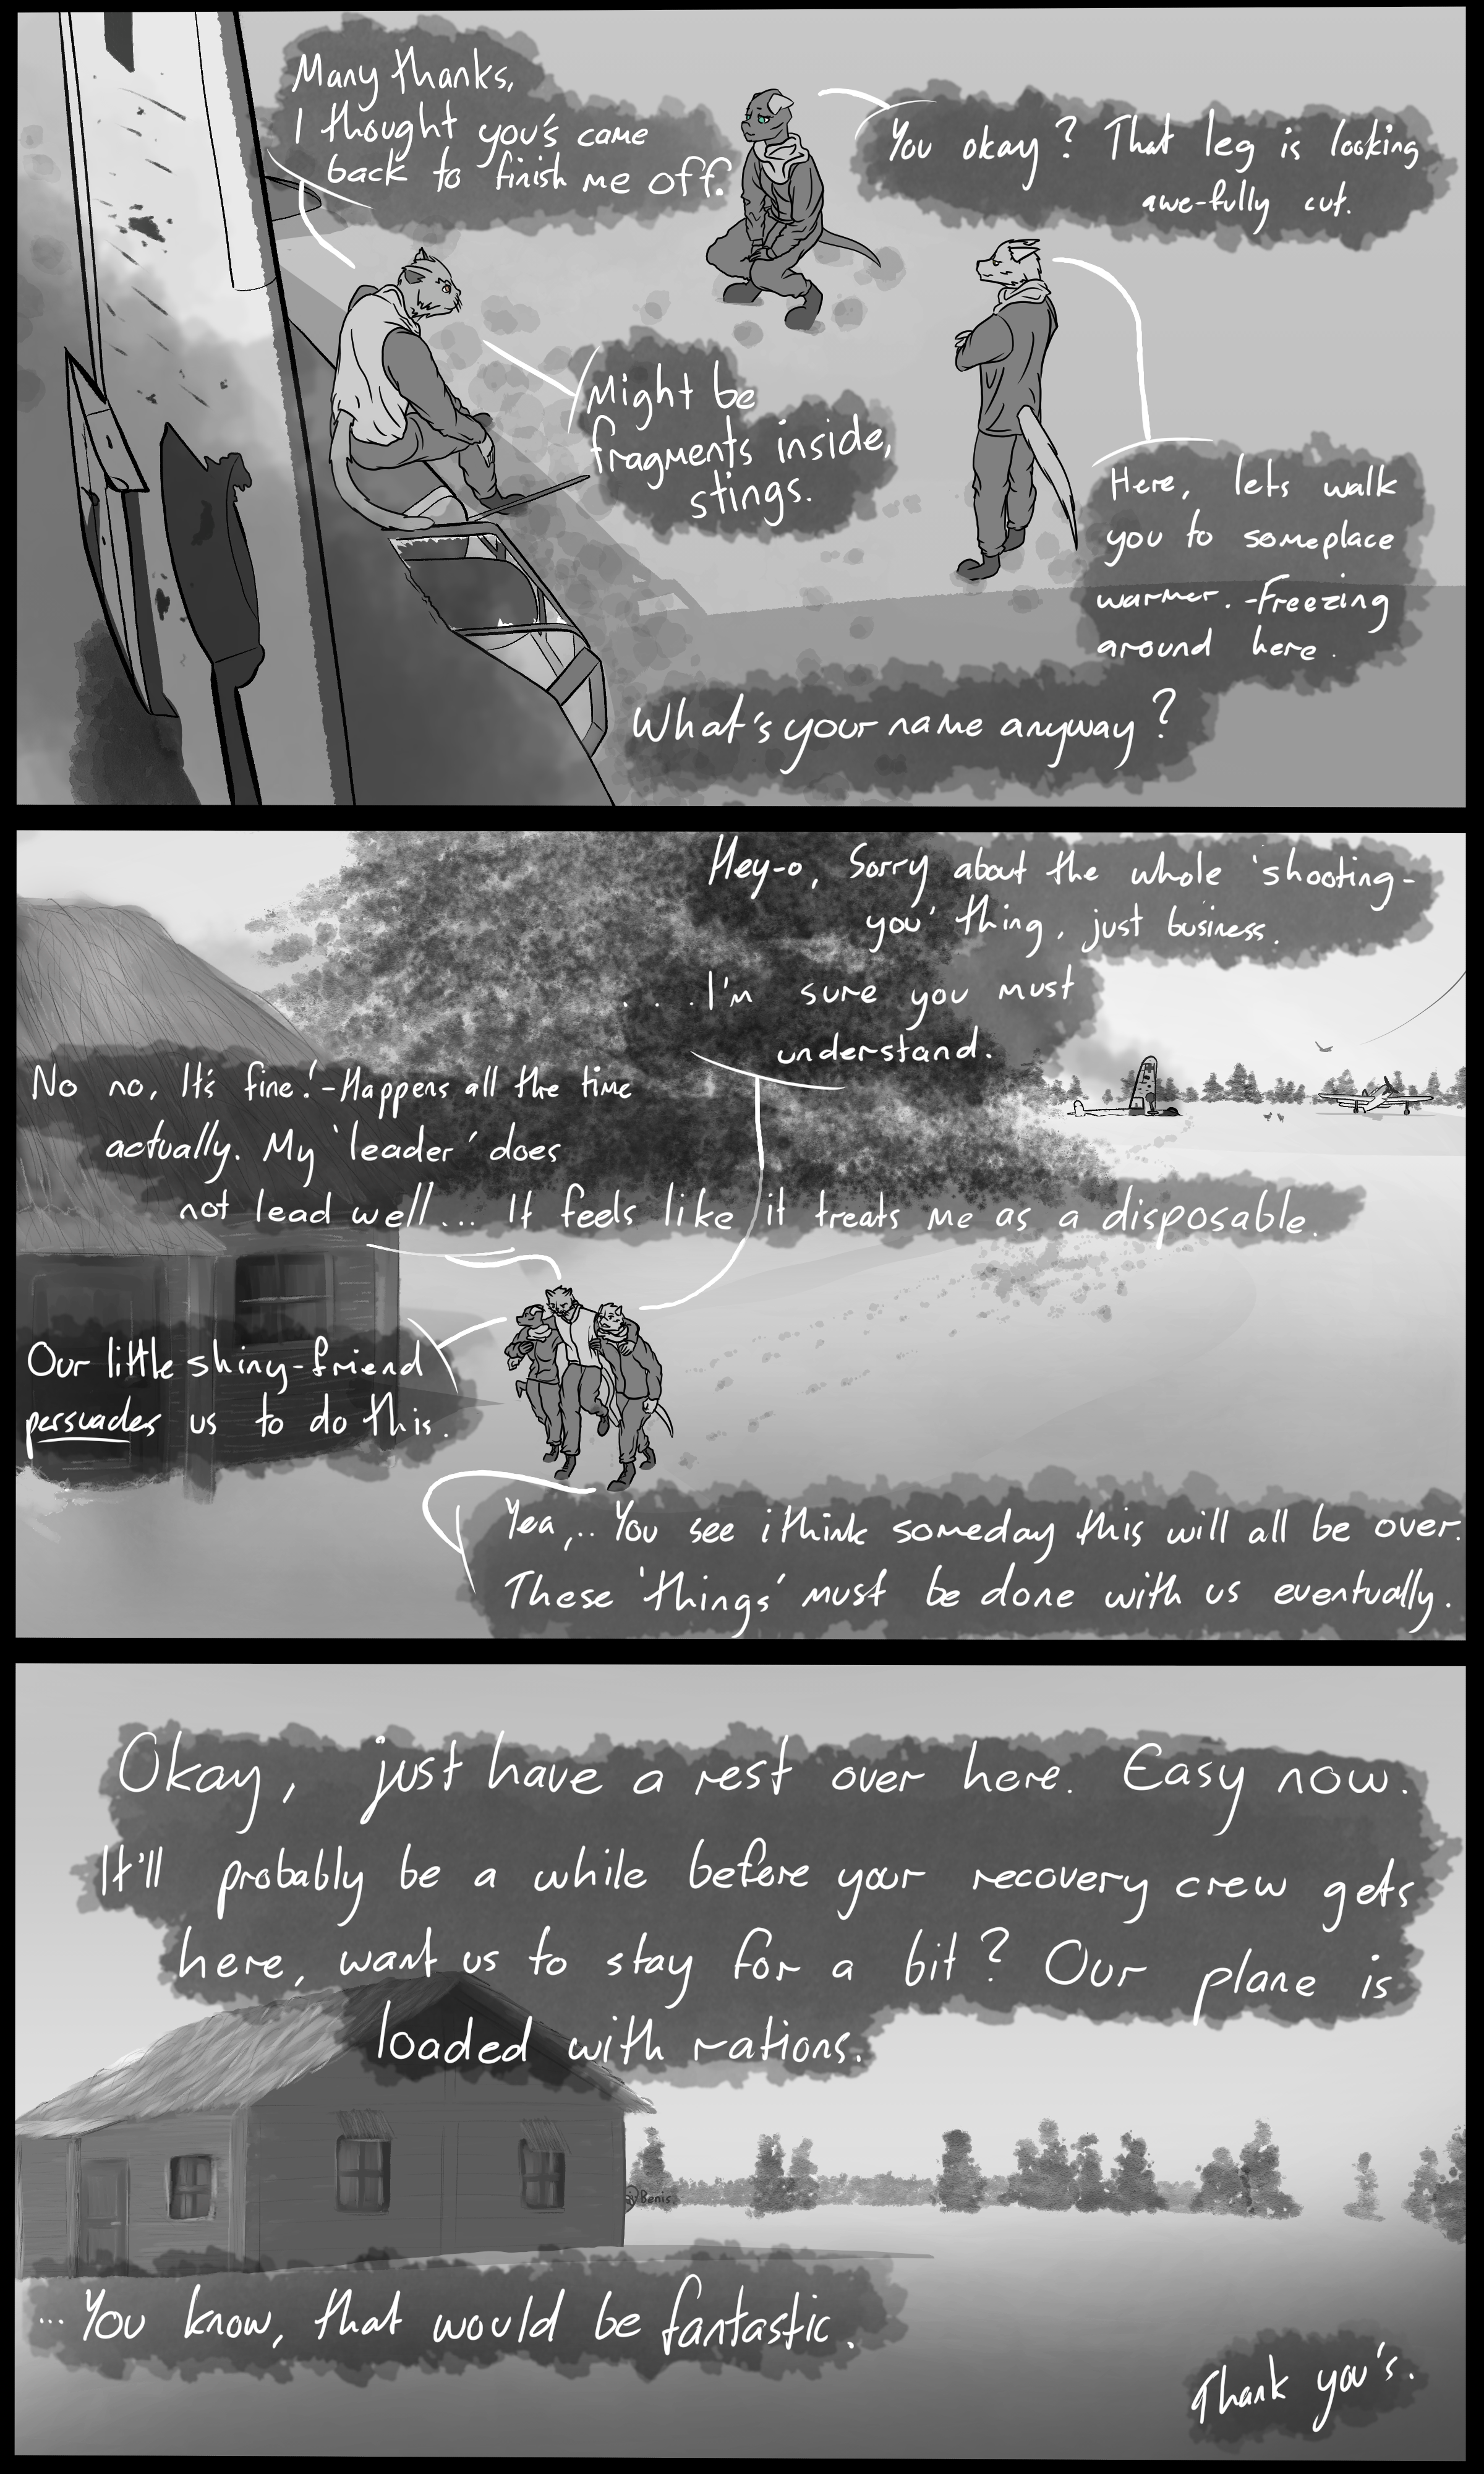 Many thanks,
I thought you's came
back to finish me off.
You okay? That leg is looking
awe-fully cut.
Might be
fragments inside,
stings.
Here, lets walk
you to someplace
warmer. -Freezing
around here.
What's your name anyway?
Hey-o, Sorry about the whole 'shooting-
you' thing, just business.
....I'm sure you must
understand.
No no, It's fine!-Happens all the time
actually. My 'leader' does
not lead well... It feels like it treats me as a disposable.
Our little shiny-friend
persuades us to do this.
Yea,.. You see i think someday this will all be over.
These 'things' must be done with us eventually.
Okay, just have a rest over here. Easy now.
It'll probably be a while before your recovery crew gets
here, want us to stay for a bit? Our plane is
loaded with rations.
Benis
...You know, that would be fantastic.
Thank you's.